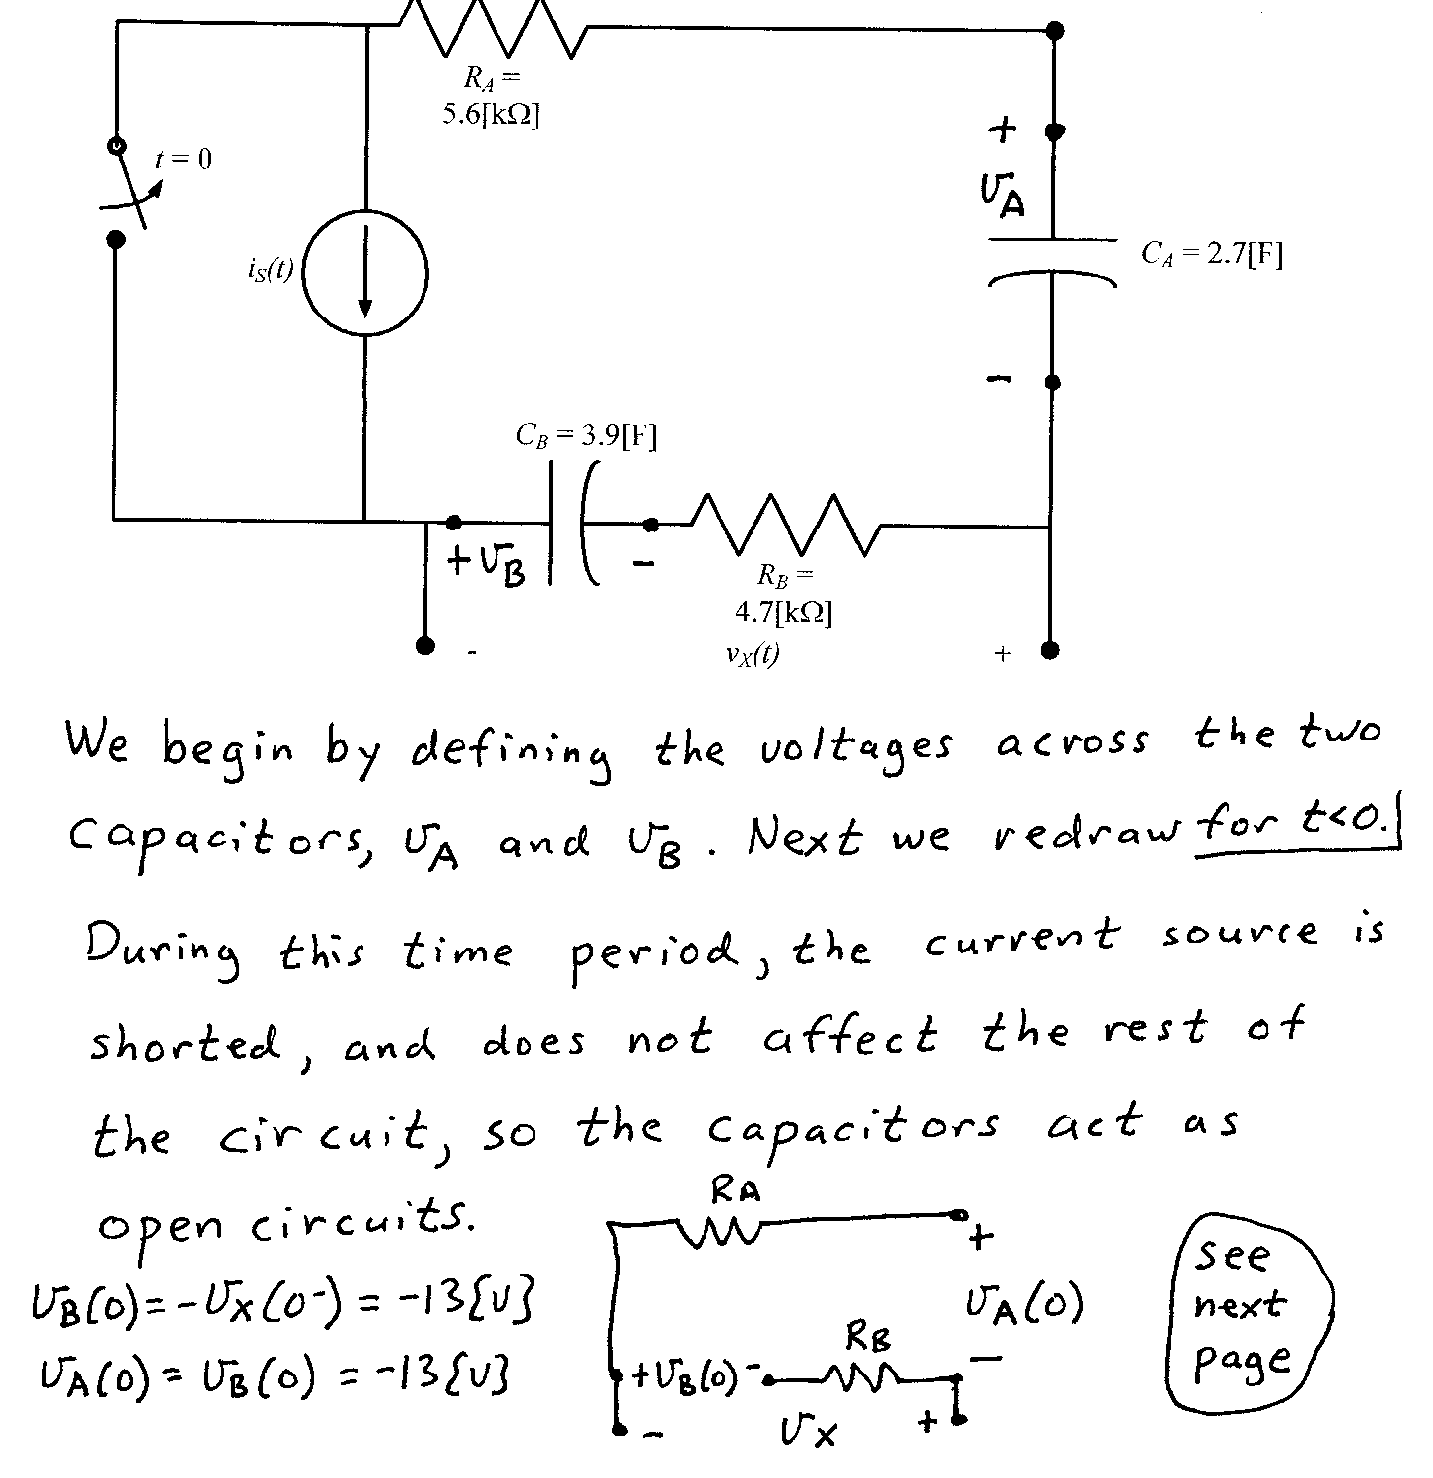 R_A =
5.6[kΩ]
t = 0
+
v_A
i_S(t)
C_A = 2.7[F]
-
C_B = 3.9[F]
+ v_B -
R_B =
4.7[kΩ]
- v_X(t) +
We begin by defining the voltages across the two
capacitors, v_A and v_B. Next we redraw for t<0.
During this time period, the current source is
shorted, and does not affect the rest of
the circuit, so the capacitors act as
open circuits.
v_B(0) = -v_X(0-) = -13{V}
v_A(0) = v_B(0) = -13{V}
RA
+
v_A(0)
-
RB
+ v_B(0) -
- v_X +
see
next
page